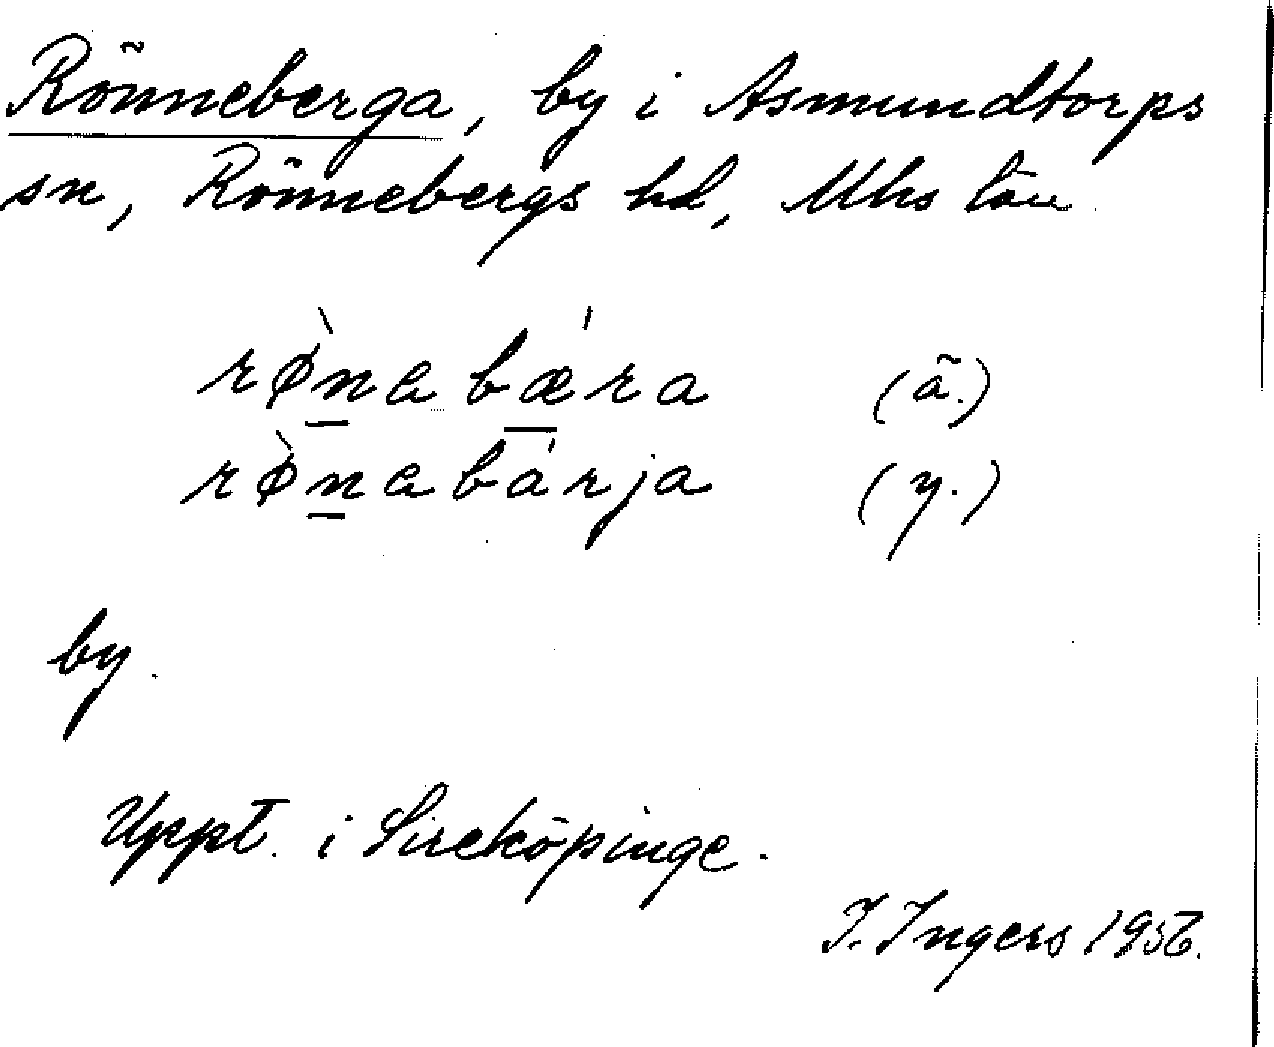 Rönneberga, by i Asmundtorps
sn, Rönnebergs hd, Mhs län
rø̀n̲abǽ̲ra (ä.)
rø̀n̲abárja (y.)
by.
Uppt. i Sireköpinge.
I. Ingers 1956.